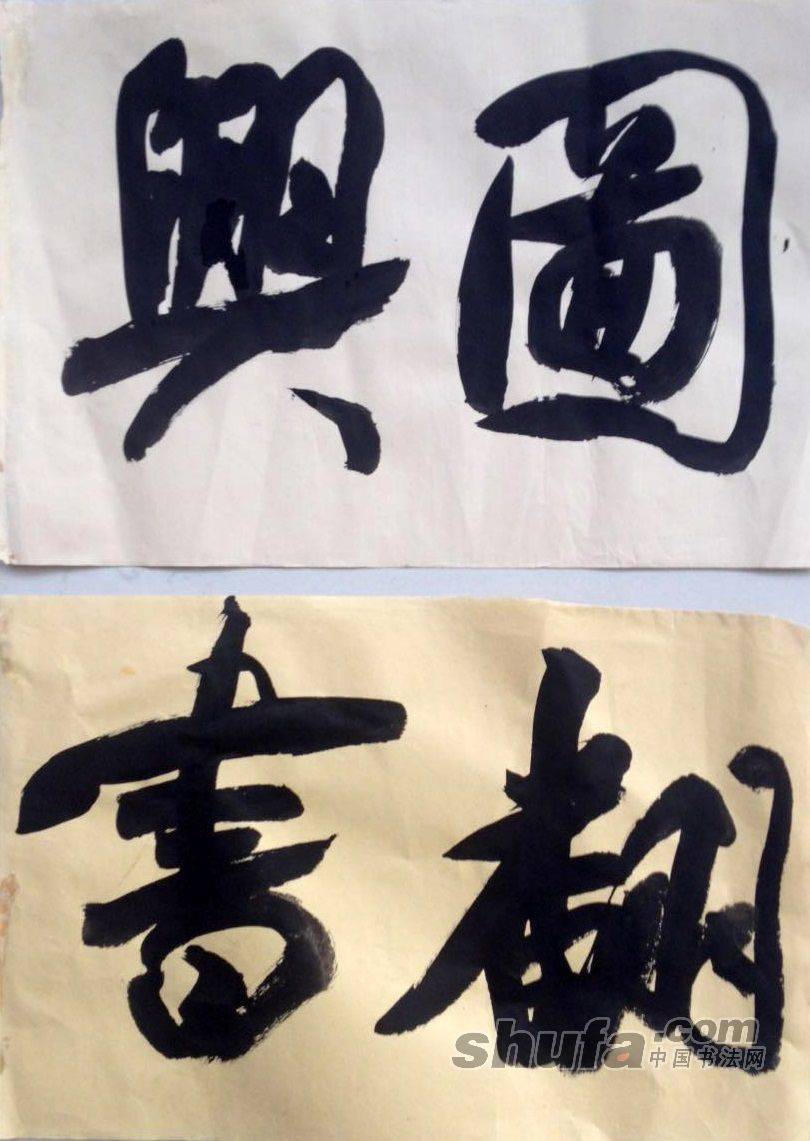 圖興
翻書
shufa.com
中国书法网